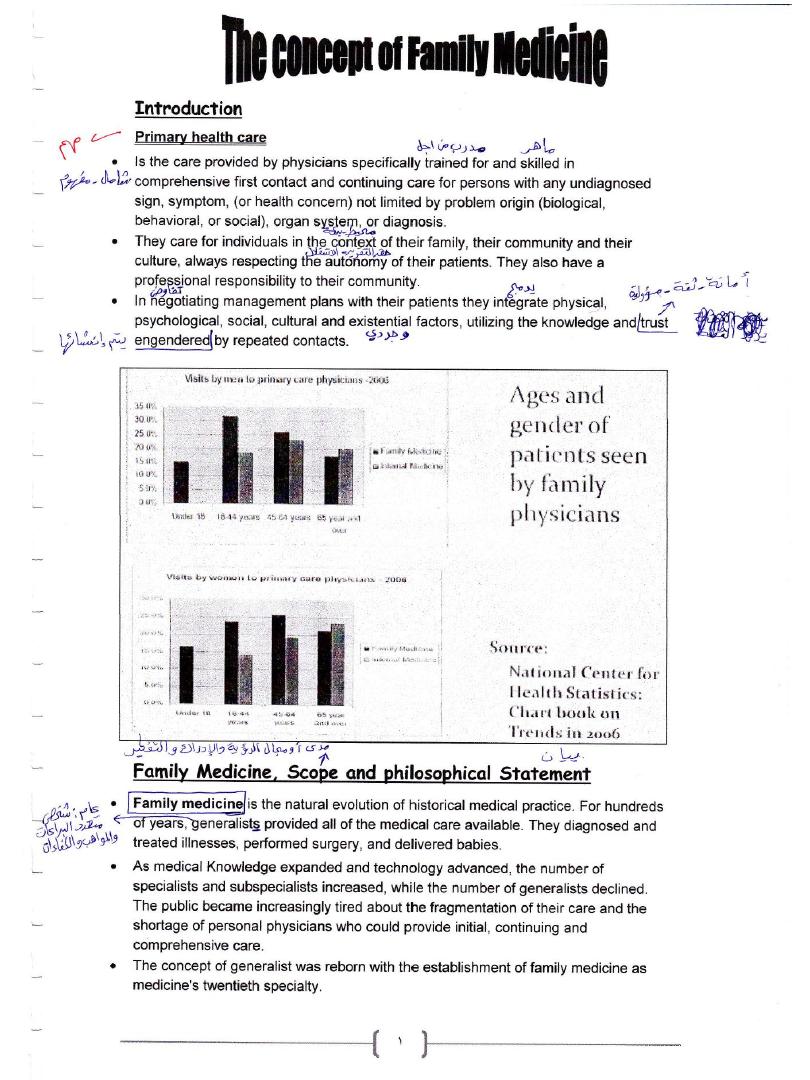 The concept of Family Medicine
Introduction
مهم
Primary health care
ماهر
مدرب من اجل
• Is the care provided by physicians specifically trained for and skilled in
شامل - مفهوم
comprehensive first contact and continuing care for persons with any undiagnosed
sign, symptom, (or health concern) not limited by problem origin (biological,
behavioral, or social), organ system, or diagnosis.
• They care for individuals in the context of their family, their community and their
culture, always respecting the autonomy of their patients. They also have a
professional responsibility to their community.
أمانة - ثقة - مسؤولية
تفاوض
يدمج
• In negotiating management plans with their patients they integrate physical,
psychological, social, cultural and existential factors, utilizing the knowledge and trust
وجودي
يتم إنشائها
engendered by repeated contacts.
Visits by men to primary care physicians -2006
35.0%
30.0%
25.0%
20.0%
15.0%
10.0%
5.0%
0.0%
Family Medicine
Internal Medicine
Under 18 18-44 years 45-64 years 65 year and
over
Ages and
gender of
patients seen
by family
physicians
Visits by women to primary care physicians - 2006
25.0%
20.0%
15.0%
10.0%
5.0%
0.0%
Family Medicine
Internal Medicine
Under 18 18-44 45-64 65 year
years years and over
Source:
National Center for
Health Statistics:
Chart book on
Trends in 2006
مدى أو مجال الرؤية والإدراك والتفكير
بيان
Family Medicine, Scope and philosophical Statement
عام: شخص
متعدد البراعات
والمواهب والكفاءات
• Family medicine is the natural evolution of historical medical practice. For hundreds
of years, generalists provided all of the medical care available. They diagnosed and
treated illnesses, performed surgery, and delivered babies.
• As medical Knowledge expanded and technology advanced, the number of
specialists and subspecialists increased, while the number of generalists declined.
The public became increasingly tired about the fragmentation of their care and the
shortage of personal physicians who could provide initial, continuing and
comprehensive care.
• The concept of generalist was reborn with the establishment of family medicine as
medicine's twentieth specialty.
١